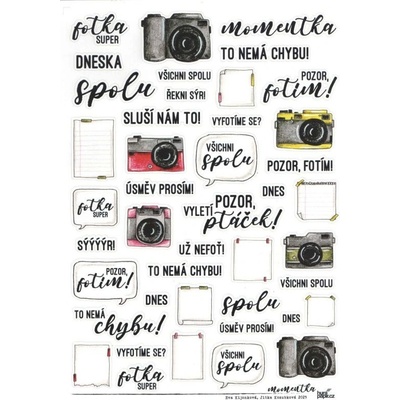 fotka
SUPER
momentka
TO NEMÁ CHYBU!
DNESKA
spolu
VŠICHNI SPOLU
ŘEKNI SÝR!
POZOR,
fotím!
SLUŠÍ NÁM TO!
VYFOTÍME SE?
VŠICHNI
spolu
POZOR, FOTÍM!
ÚSMĚV PROSÍM!
DNES
fotka
SUPER
VYLETÍ
POZOR,
ptáček!
SÝÝÝÝR!
UŽ NEFOŤ!
POZOR,
fotím!
TO NEMÁ CHYBU!
VŠICHNI SPOLU
DNES
spolu
TO NEMÁ
chybu!
ÚSMĚV PROSÍM!
DNES
VYFOTÍME SE?
fotka
SUPER
VŠICHNI
spolu
momentka